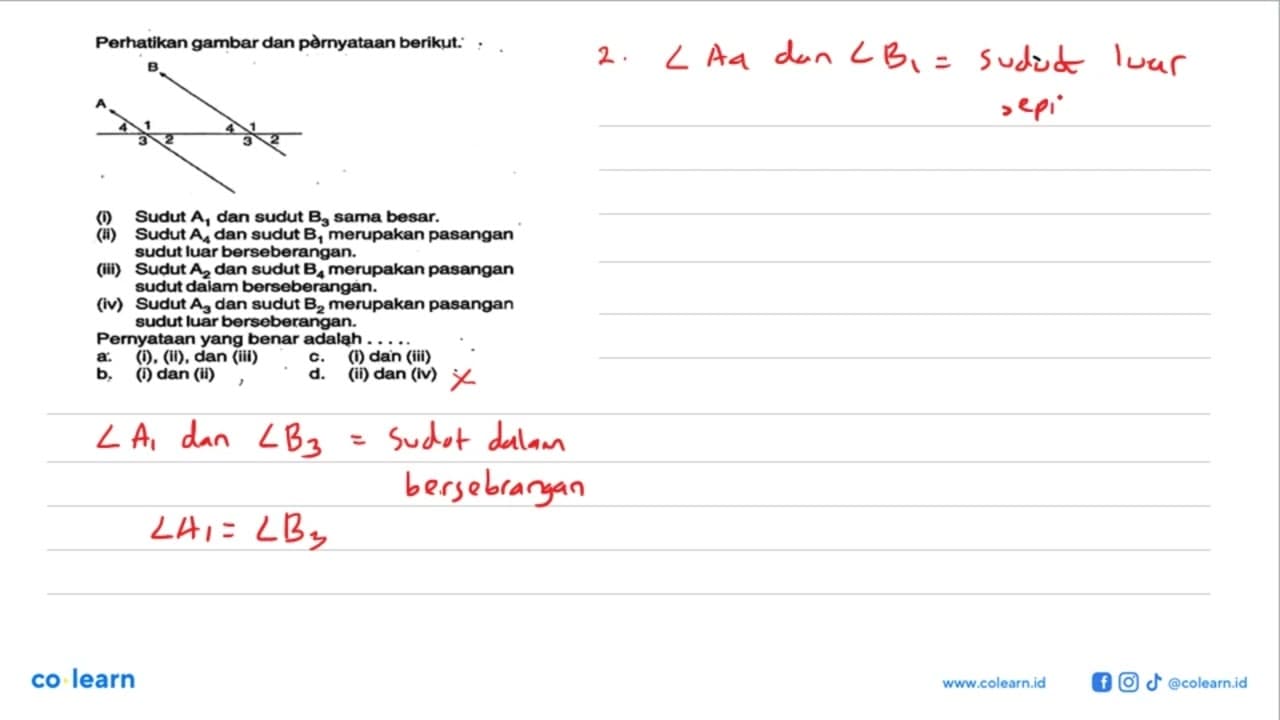 Perhatikan gambar dan pernyataan berikut.
B
A
4 1 4 1
3 2 3 2
(i) Sudut A₁ dan sudut B₃ sama besar.
(ii) Sudut A₄ dan sudut B₁ merupakan pasangan
sudut luar berseberangan.
(iii) Sudut A₂ dan sudut B₄ merupakan pasangan
sudut dalam berseberangan.
(iv) Sudut A₃ dan sudut B₂ merupakan pasangan
sudut luar berseberangan.
Pernyataan yang benar adalah . . . . .
a. (i), (ii), dan (iii) c. (i) dan (iii)
b. (i) dan (ii) d. (ii) dan (iv) X
∠A₁ dan ∠B₃ = Sudut dalam
bersebrangan
∠A₁ = ∠B₃
2. ∠A₄ dan ∠B₁ = sudut luar
sepi
co learn
www.colearn.id @colearn.id